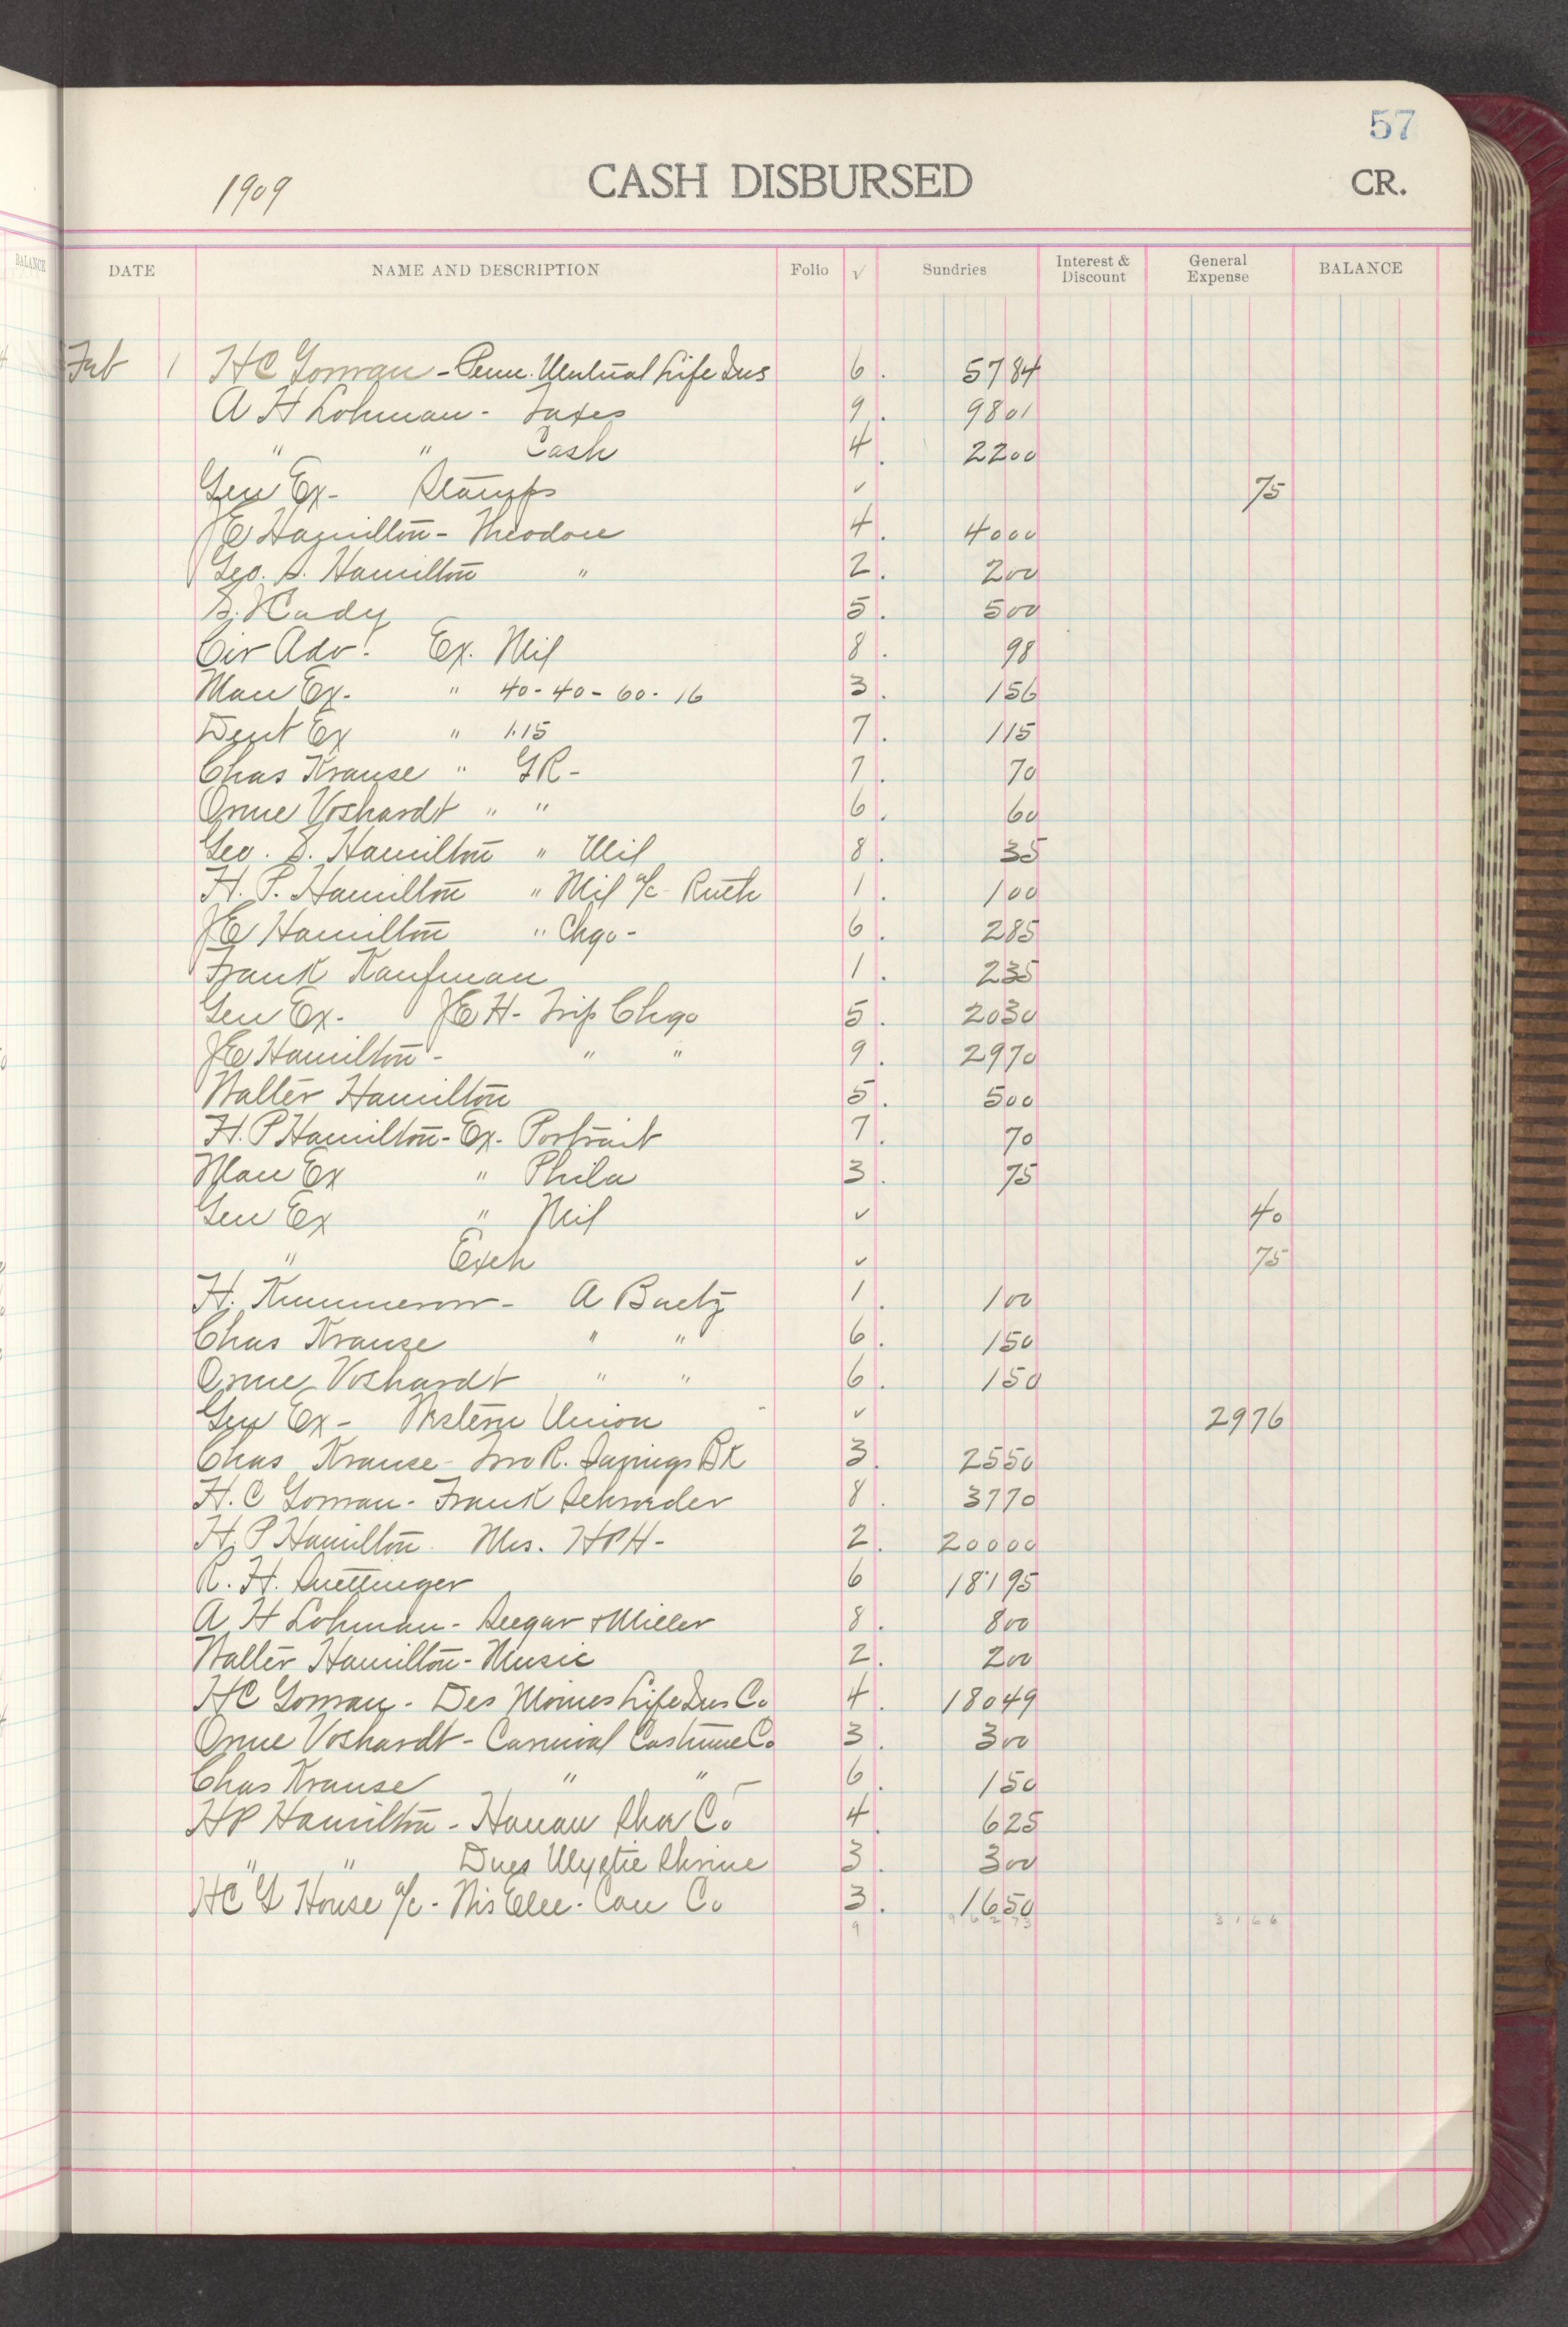 57
1909 CASH DISBURSED CR.
BALANCE DATE NAME AND DESCRIPTION Folio √ Sundries Interest & Discount General Expense BALANCE
Feb 1 HC Gorman - Penn. Mutual Life Ins 6. 5784
A H Lohman - Taxes 9. 9801
" " Cash 4. 2200
Gen Ex - Stamps ✓ 75
JE Hamilton - Theodore 4. 4000
Geo. S. Hamilton " 2. 200
S. Cady 5. 500
Cir Adv. Ex. Mil 8. 98
Man Ex. " 40-40-60-16 3. 156
Dent Ex " 1.15 7. 115
Chas Krause " GR - 7. 70
Orme Voshardt " " 6. 60
Geo. S. Hamilton " Mil 8. 35
H. P. Hamilton " Mil a/c - Ruth 1. 100
JE Hamilton " Chgo - 6. 285
Frank Kaufman 1. 235
Gen Ex - JEH - Trip Chgo 5. 2030
JE Hamilton - " " 9. 2970
Walter Hamilton 5. 500
H. P Hamilton - Ex - Portrait 7. 70
Man Ex " Phila 3. 75
Gen Ex " Mil ✓ 40
" Exch ✓ 75
H. Kummerow - A Baetz 1. 100
Chas Krause " " 6. 150
Orme Voshardt " " 6. 150
Gen Ex - Western Union ✓ 2976
Chas Krause - Two R. Savings Bk 3. 2550
H. C Gorman - Frank Schroeder 8. 3770
H. P Hamilton Mrs. HPH - 2. 20000
R. H. Suettinger 6 18195
A H Lohman - Seegar & Miller 8. 800
Walter Hamilton - Music 2. 200
HC Gorman - Des Moines Life Ins Co 4. 18049
Orme Voshardt - Carnival Costume Co 3. 300
Chas Krause " " 6. 150
HP Hamilton - Hanan Shoe Co 4. 625
" " Dues Mystic Shrine 3. 300
HC G House a/c - Wis Elec. Con Co 3. 1650
9 96273 3166